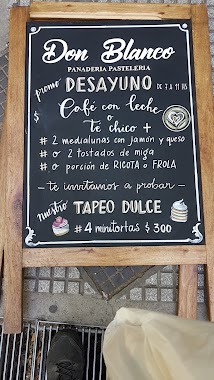 Don Blanco
PANADERIA PASTELERIA
promo DESAYUNO DE 7 A 11 HS
$
Café con leche
o
Té chico +
# 2 medialunas con jamón y queso
# o 2 tostados de miga
# o porción de RICOTA o FROLA
- te invitamos a probar -
nuestro TAPEO DULCE
# 4 minitortas $300